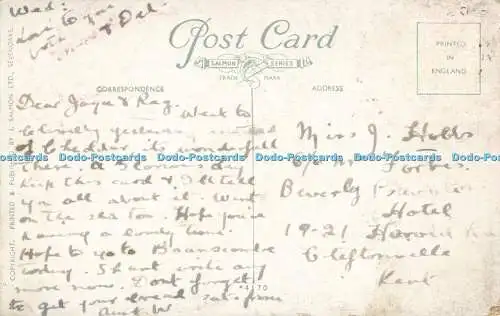 Wed:
love to you
both
& Del
Post Card
SALMON SERIES
TRADE MARK
PRINTED
IN
ENGLAND
CORRESPONDENCE
ADDRESS
COPYRIGHT. PRINTED & PUBLISHED BY J. SALMON LTD., SEVENOAKS.
Dear Joyce & Reg. Went to
Clovelly yesterday instead
of Cheddar its wonderful
there. A Glorious day
keep this card & I'll tell
you all about it. Went
on the sea too. Hope you're
having a lovely time.
Hope to go to Branscombe
today. Shant write any
more now. Dont forget
to get your bread
Aunt W
Miss J. Hobbs
Forbes
Beverly
Hotel
19-21 Harold
Cliftonville
Kent
70
Dodo-Postcards Dodo-Postcards Dodo-Postcards Dodo-Postcards Dodo-Postcards
Dodo-Postcards Dodo-Postcards Dodo-Postcards Dodo-Postcards Dodo-Postcards